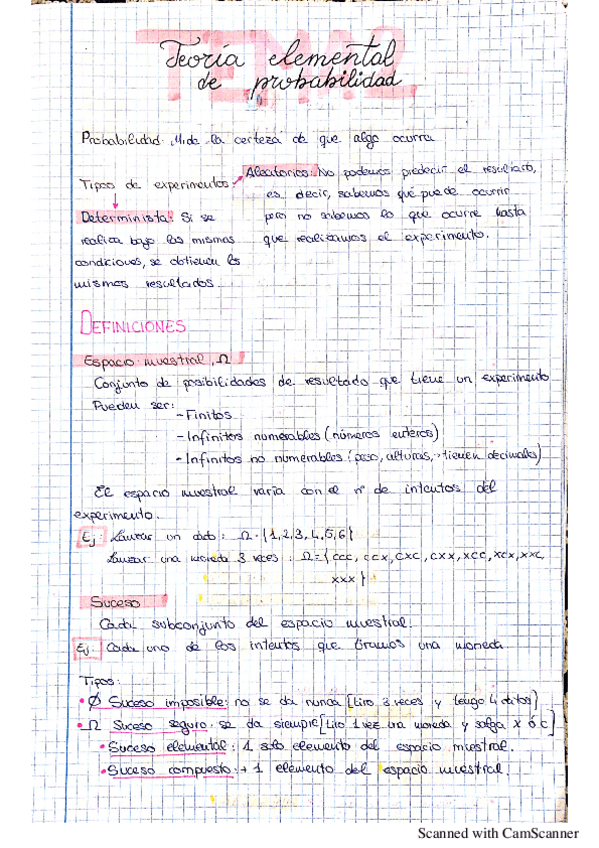 TEMA 2
Teoría elemental
de probabilidad
Probabilidad: Mide la certeza de que algo ocurra
Tipos de experimentos:
Aleatorios: No podemos predecir el resultado,
es decir, sabemos qué puede ocurrir
pero no sabemos lo que ocurre hasta
que realizamos el experimento.
Determinista: Si se
realiza bajo las mismas
condiciones, se obtienen los
mismos resultados.
DEFINICIONES
Espacio muestral, Ω
Conjunto de posibilidades de resultado que tiene un experimento
Pueden ser:
- Finitos
- Infinitos numerables (números enteros)
- Infinitos no numerables (peso, alturas, tienen decimales)
El espacio muestral varía con el nº de intentos del
experimento.
Ej: Lanzar un dado: Ω={1,2,3,4,5,6}
Lanzar una moneda 3 veces: Ω={ccc, ccx, cxc, cxx, xcc, xcx, xxc,
xxx}
Suceso
Cada subconjunto del espacio muestral.
Ej: Cada uno de los intentos que tiramos una moneda
Tipos:
• Ø Suceso imposible: no se da nunca [tiro 3 veces y tengo 4 éxitos]
• Ω Suceso seguro: se da siempre [tiro 1 vez una moneda y salga x ó c]
• Suceso elemental: 1 solo elemento del espacio muestral.
• Suceso compuesto: + 1 elemento del espacio muestral.
Scanned with CamScanner